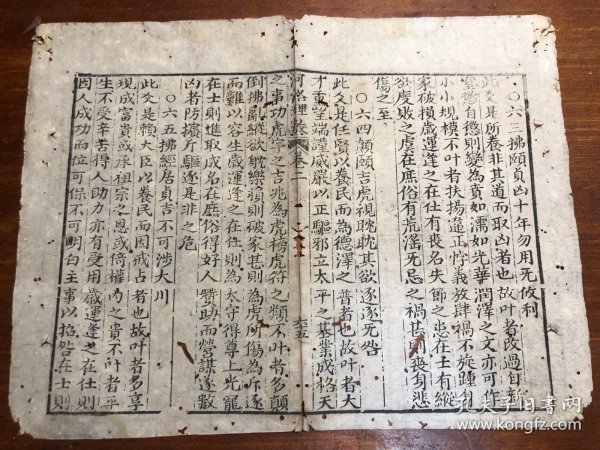 ○六三拂頤貞凶十年勿用无攸利
此爻是所養非其道而取凶者也故叶者改過自新
窒慾自德則變為賁如濡如光華潤澤之文亦可作
小小規模不叶者扶搊違正悖義放肆禍不旋踵身
家破損歲運逢之在仕有喪名失節之患在士有縱
欲度敗之虞在庶俗有荒淫无忌之禍甚則喪身悲
傷之至
○六四顛頤吉虎視眈眈其欲逐逐无咎
此爻是任賢以養民而為德澤之普者也故叶者大
才重望端謹威嚴以正驅邪立太平之基業成格天
河洛理數 卷二 六五
之事功虎字之吉兆為虎榜虎符之類不叶者多顛
倒拂亂縱欲耽樂損則破家甚則為虎所傷為斥逐
而難以容生歲運逢之在仕則為太守得尊上光寵
在士則進取成名在庶俗得好人贊助而營謀遂數
凶者防擯斥驅逐是非之危
○六五拂經居貞吉不可涉大川
此爻是賴大臣以養民而因戒占者也故叶者多享
現成富貴或承祖宗之恩或倚權內之貴不叶者平
生不受辛苦得人助力亦有受用歲運逢之在仕則
因人成功而位可保不可明白主事以招咎在士則
孔夫子旧书网
book.kongfz.com